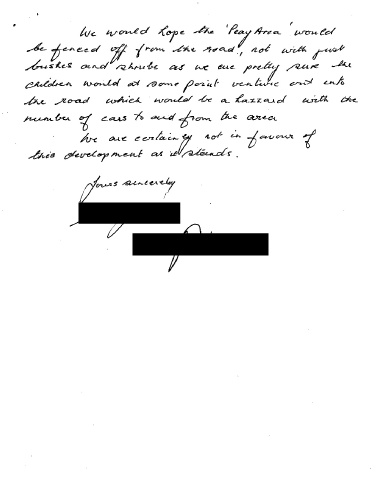 We would hope the 'Play Area' would
be fenced off from the road, not with just
bushes and shrubs as we are pretty sure the
children would at some point venture out into
the road which would be a hazzard with the
number of cars to and from the area
We are certainly not in favour of
this development as it stands.
Yours sincerely